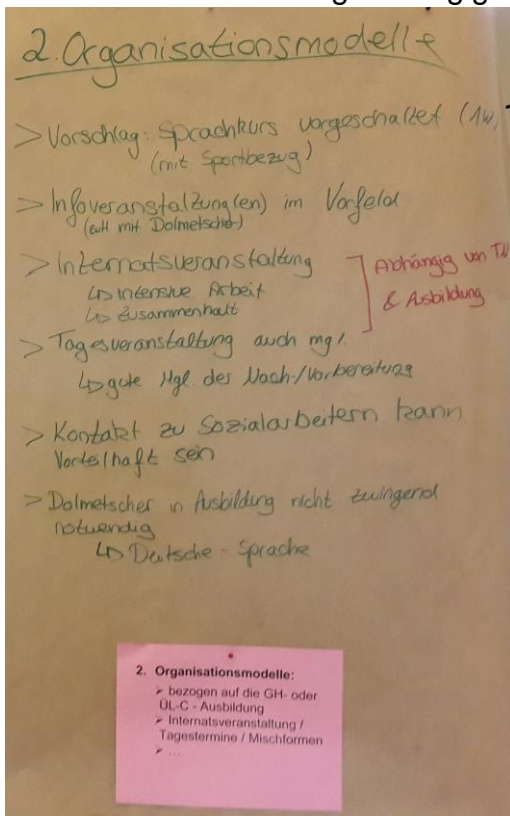 2. Organisationsmodelle
> Vorschlag: Sprachkurs vorgeschaltet (1W,
(mit Sportbezug)
> Infoveranstaltung(en) im Vorfeld
(evtl mit Dolmetscher)
> Internatsveranstaltung
↳ intensive Arbeit
↳ Zusammenhalt
Abhängig von TN
& Ausbildung
> Tagesveranstaltung auch mgl.
↳ gute Mgl. des Nach-/Vorbereitung
> Kontakt zu Sozialarbeitern kann
Vorteilhaft sein
> Dolmetscher in Ausbildung nicht zwingend
notwendig
↳ Deutsche - Sprache
2. Organisationsmodelle:
➢ bezogen auf die GH- oder
ÜL-C - Ausbildung
➢ Internatsveranstaltung /
Tagestermine / Mischformen
➢ ...